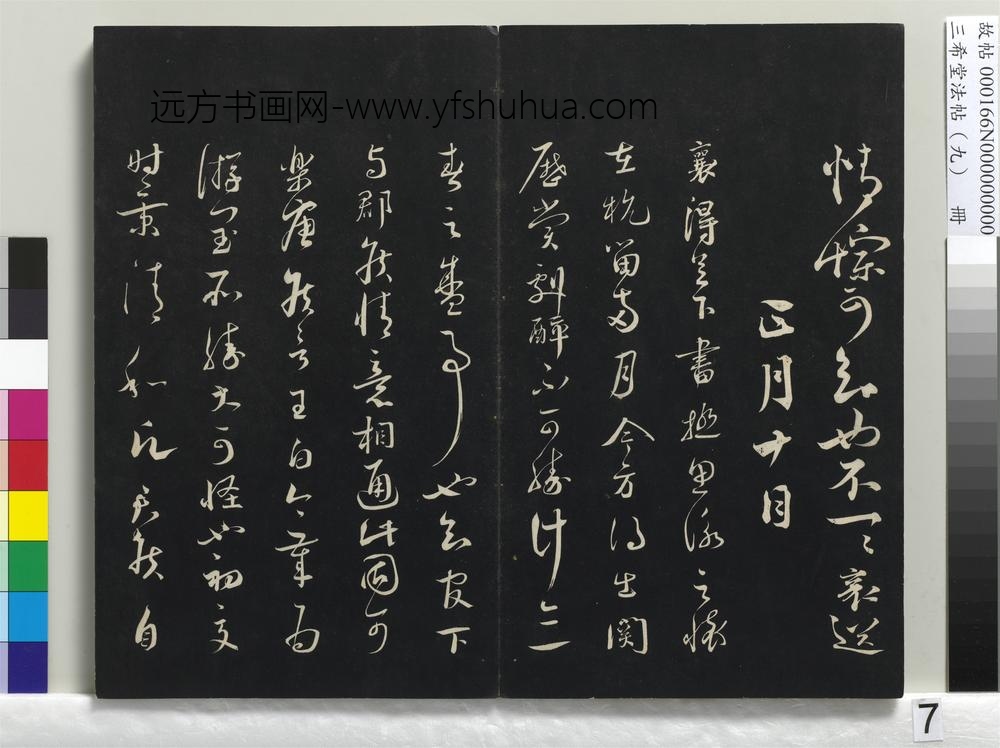 远方书画网-www.yfshuhua.com
情悰可知也不一一襄送
正月十日
襄得足下書極思詠之懷
在杭留兩月今方得出關
歷賞劇醉不可勝計亦一
春之盛事也知官下
與郡侯情意相通此固可
樂唐侯言王白今歲為
游閏所勝大可怪也初夏
時景清和願君侯自
故帖 000166N000000000
三希堂法帖(九) 冊
7